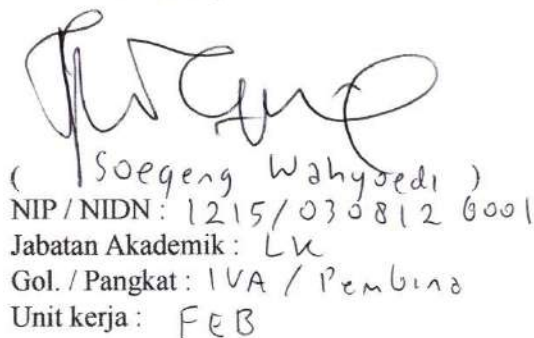 ( Soegeng Wahyoedi )
NIP / NIDN : 1215/030812 6001
Jabatan Akademik : LK
Gol. / Pangkat : IVA / Pembina
Unit kerja : FEB